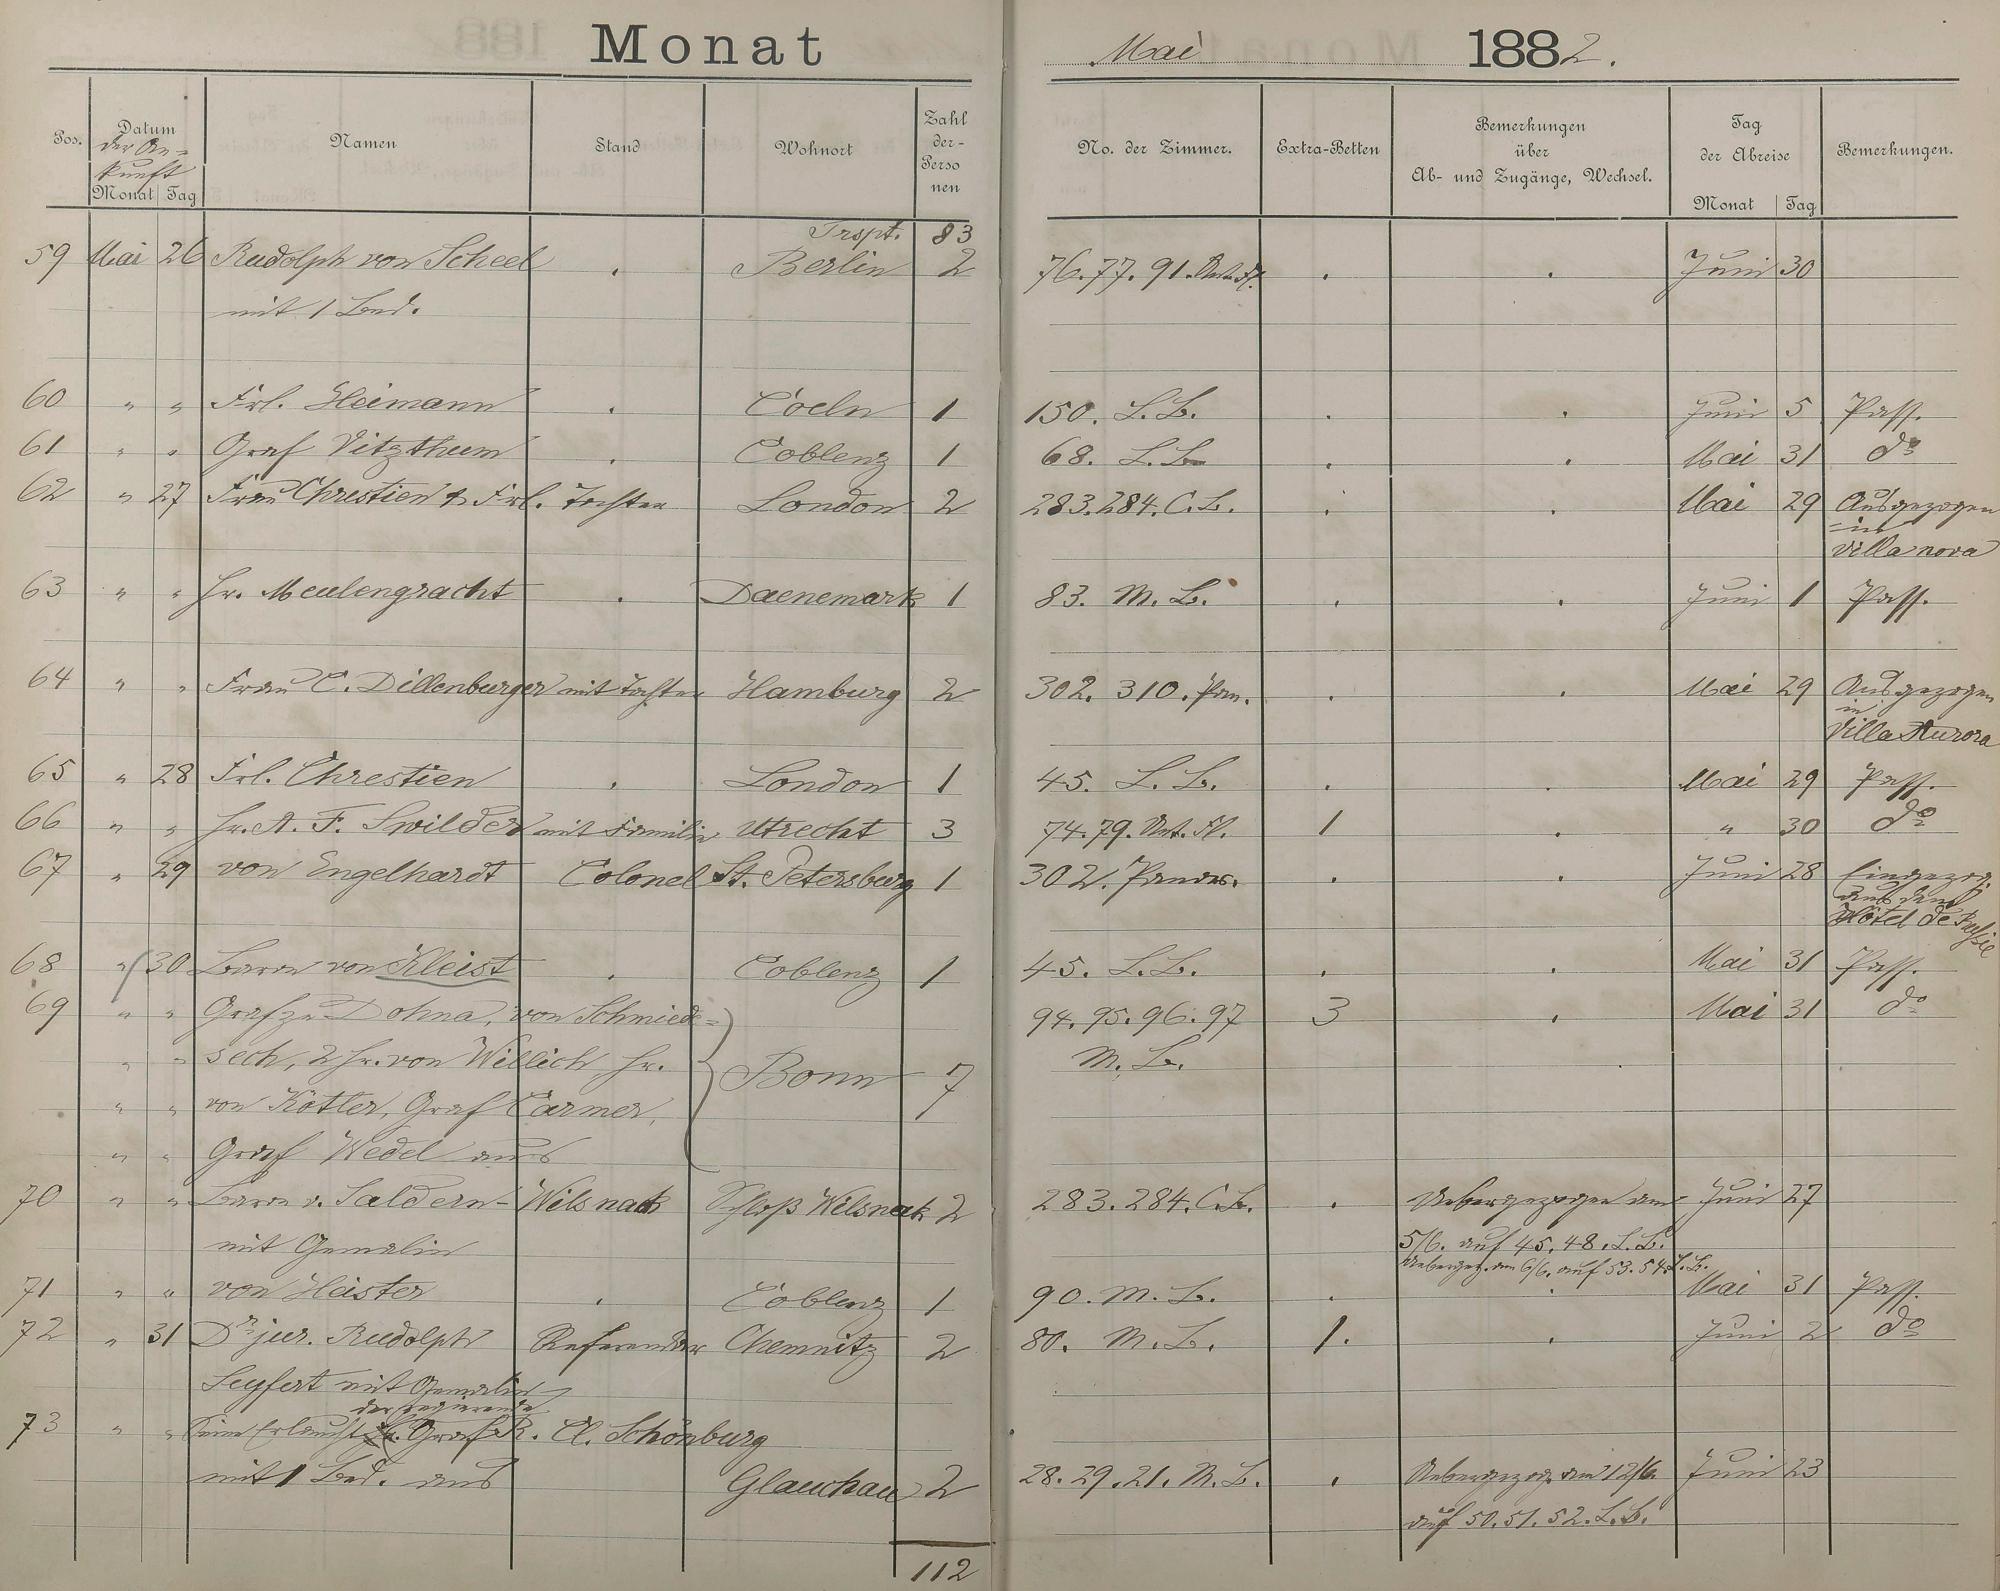 Monat Mai 1882.
Pos. Datum der An= kunft Monat Tag Namen Stand Wohnort Zahl der- Perso nen No. der Zimmer. Extra-Betten Bemerkungen über Ab- und Zugänge, Wechsel. Tag der Abreise Monat Tag Bemerkungen.
Trspt. 83
59 Mai 26 Rudolph von Scheel . Berlin 2 76.77. 91. Unt. Fl. . . Juni 30
mit 1 Bed.
60 " " Frl. Heimann . Coeln 1 150. L. B. . . Juni 5 Pass.
61 " " Graf Vitzthum . Coblenz 1 68. L. B. . . Mai 31 do
62 " 27 Frau Chrestien & Frl. Tochter London 2 283.284. C. B. . . Mai 29 Ausgezogen
in
Villa nova
63 " " Hr. Meulengracht . Daenemark 1 83. M. B. . . Juni 1 Pass.
64 " " Frau C. Dillenburger mit Tochter Hamburg 2 302. 310. Pan. . . Mai 29 Ausgezogen
in
Villa Aurora
65 " 28 Frl. Chrestien . London 1 45. L. B. . . Mai 29 Pass.
66 " " Hr. A. F. Swilder mit Familie Utrecht 3 74.79. Unt. Fl. 1 . " 30 do
67 " 29 von Engelhardt Colonel St. Petersburg 1 302. Panor. . . Juni 28 Eingezog.
aus dem
Hôtel de Russie
68 " 30 Baron von Kleist . Coblenz 1 45. L. B. . . Mai 31 Pass.
69 " " Graf zu Dohna, von Schmiede= 94.95.96.97 3 . Mai 31 do
" " sech, 2 Hr. von Willich, Hr. Bonn 7 M. B.
" " von Kötler, Graf Carmer,
" " Graf Wedel aus
70 " " Baron v. Saldern-Wilsnack Schloß Wilsnack 2 283.284. C. B. . Uebergezogen am Juni 27
mit Gemalin 5/6. auf 45.48. L. B.
Uebergez. am 6/6. auf 53.54. L. B.
71 " " von Heister . Coblenz 1 90. M. B. . . Mai 31 Pass.
72 " 31 Dr jur. Rudolph Referendar Chemnitz 2 80. M. B. 1. . Juni 2 do
Seyfert mit Gemalin
der regierende
73 " " Seine Erlaucht Graf R. Cl. Schönburg
mit 1 Bed. aus Glauchau 2 28.29.21. M. B. . Uebergezog. am 12/6. Juni 23
auf 50.51.52. L. B.
112